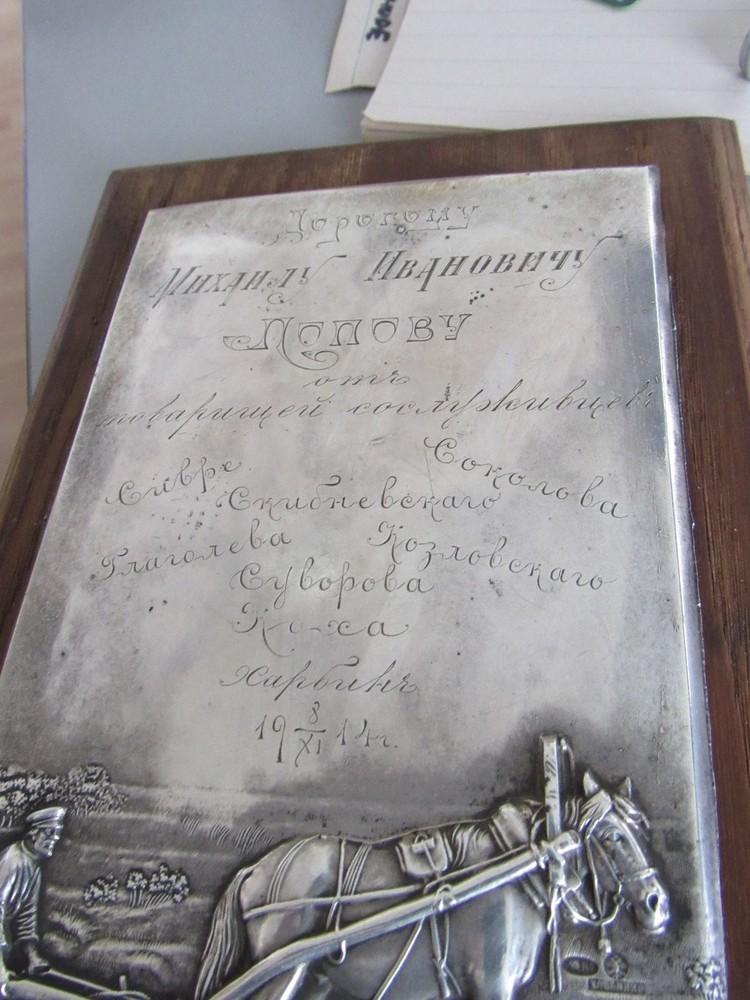 Дорогому
Михаилу Ивановичу
Попову
отъ
товарищей сослуживцевъ
Сивре Соколова
Скибневскаго
Глаголева Козловскаго
Суворова
Коха
Харбинъ
19 8/XI 14 г.